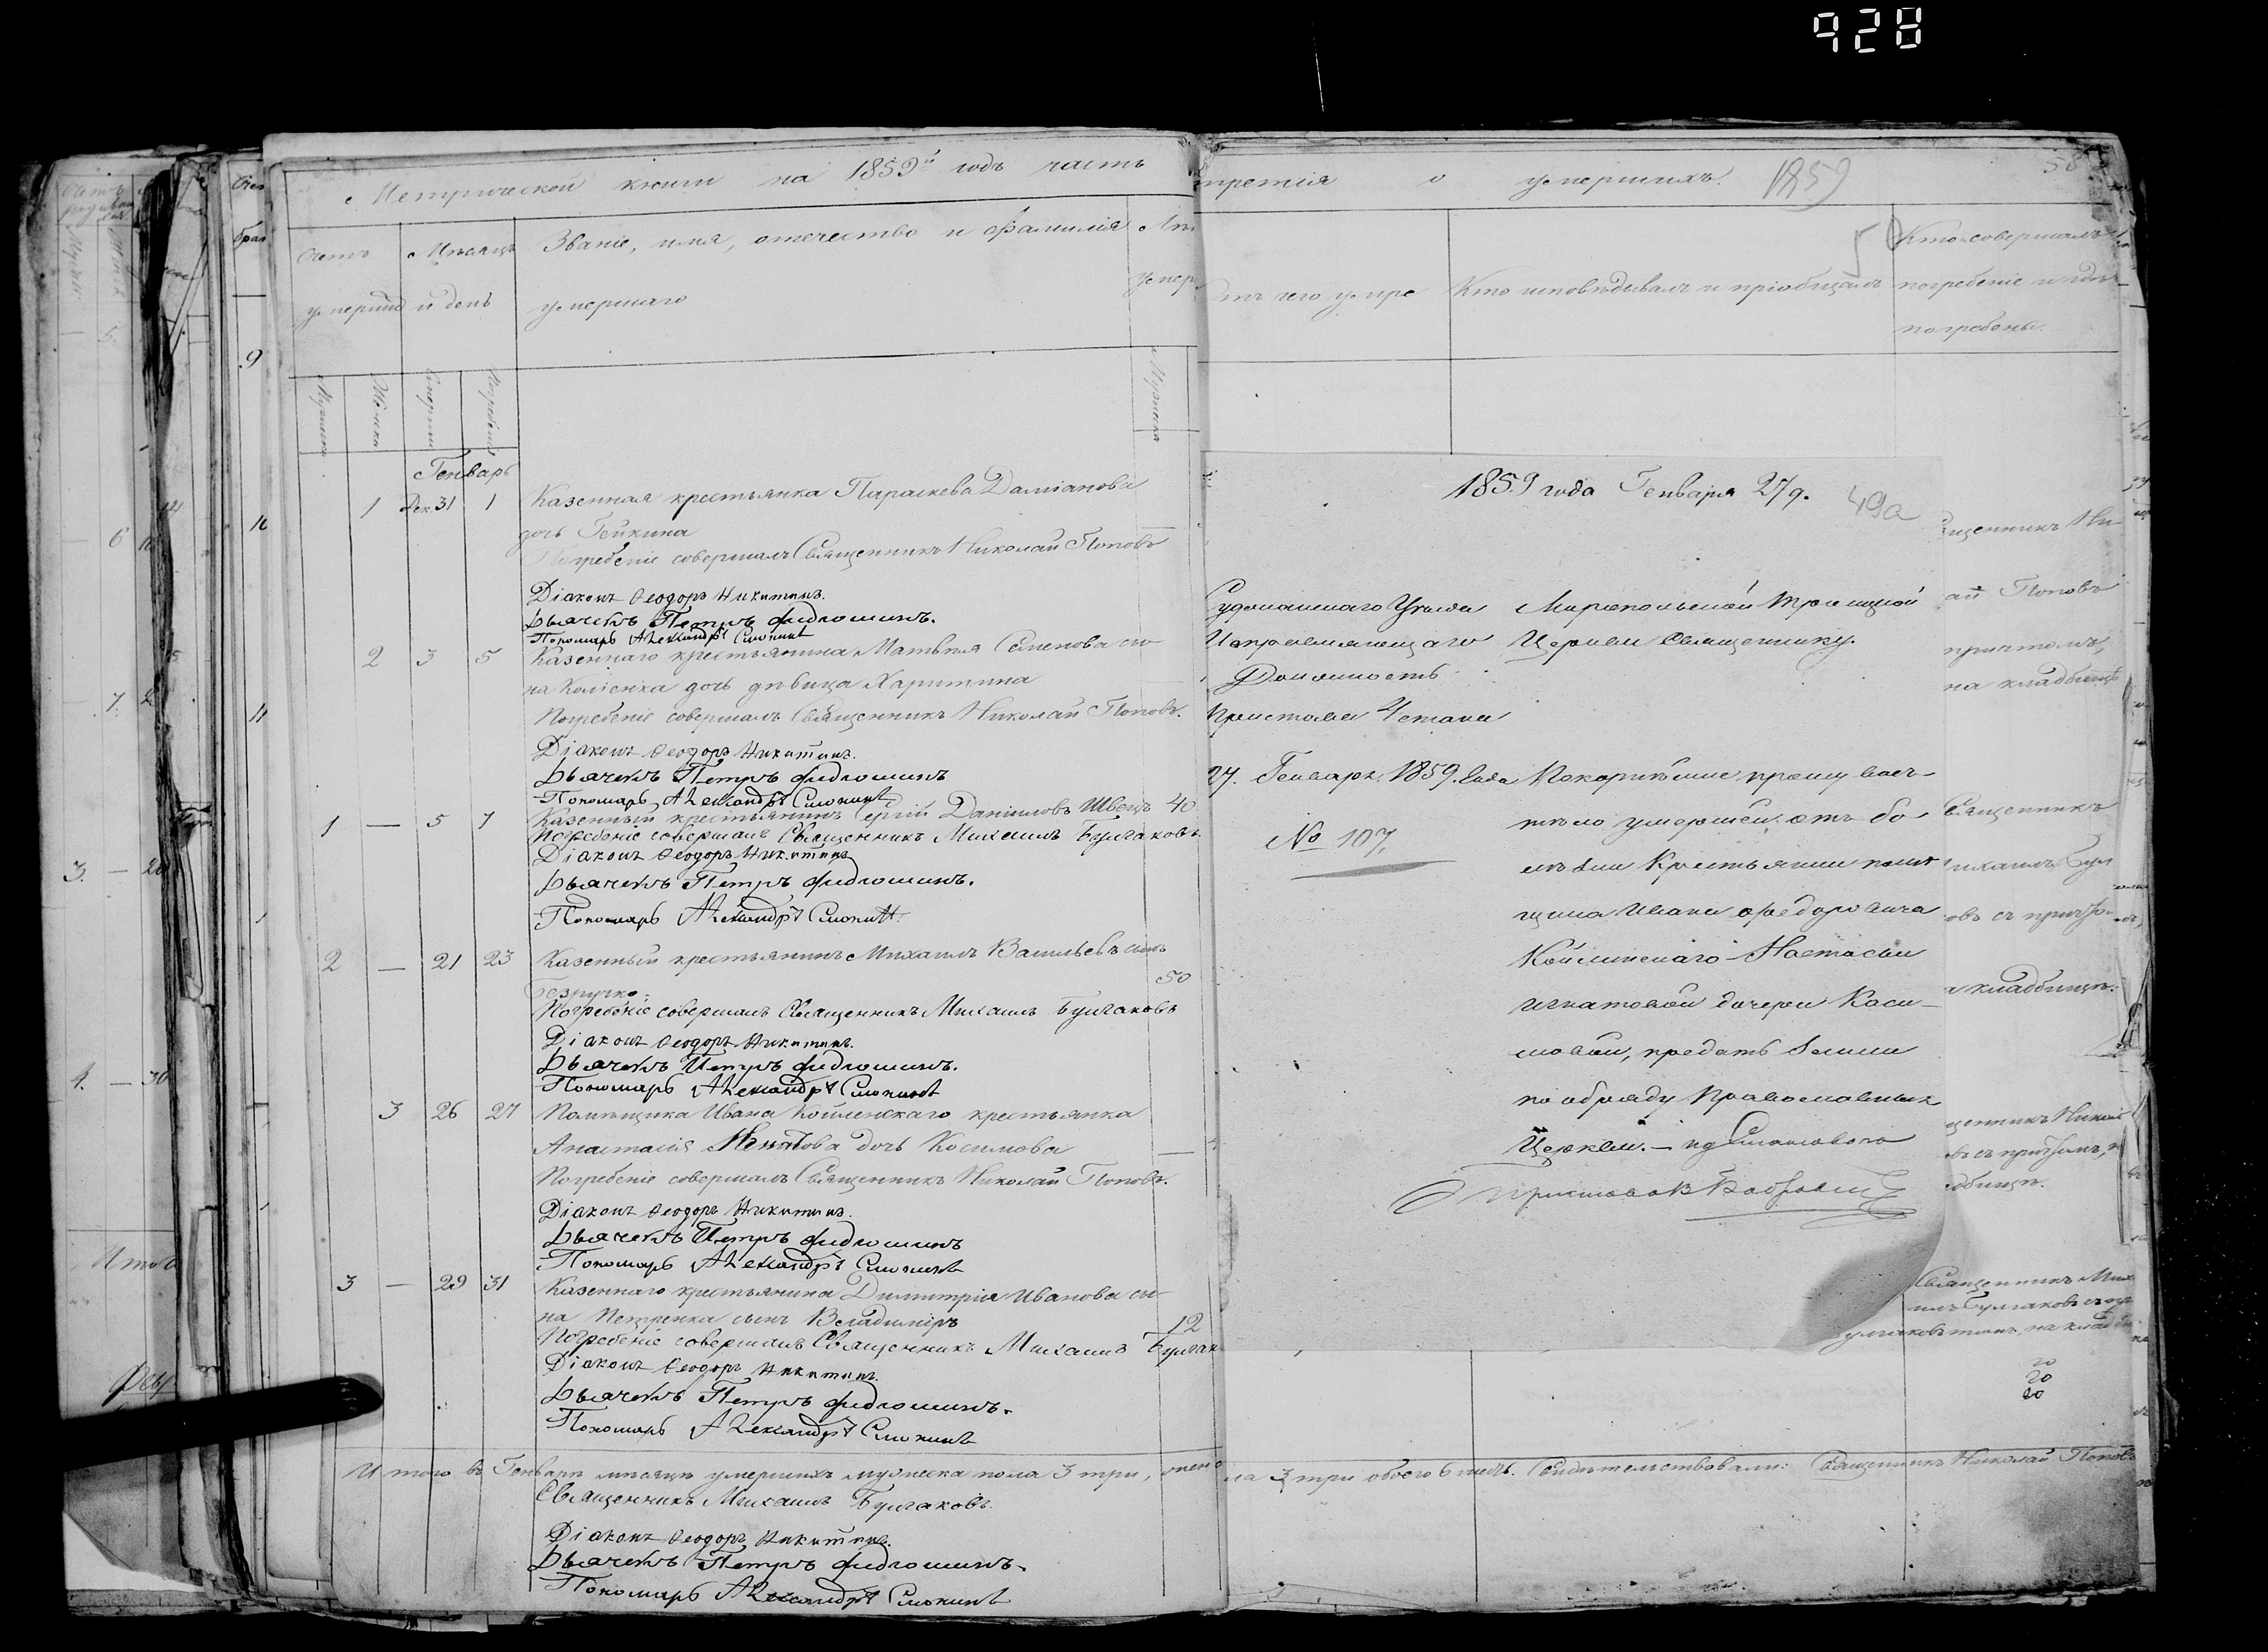 928
Метрической книги на 1859й годъ часть
третія о умершихъ. 1859
58
Счетъ
умерших
Мѣсяцъ
и день
Званіе, имя, отечество и фамилія
умершаго
Отъ чего умре
Кто исповѣдывалъ и пріобщалъ
Кто совершалъ
погребеніе и гдѣ
погребены.
Мужеска
Женска
Смерти
Погребенія
Мужеска
Генварь
1 Дек. 31 1 Казенная крестьянка Параскева Даміанова
дочь Гейкина
Погребеніе совершалъ Священникъ Николай Поповъ
Діаконъ Ѳеодоръ Никитинъ.
Дьячекъ Петръ Федюшинъ.
Пономарь Александръ Слюнинъ
2 3 5 Казеннаго крестьянина Матвѣя Семенова сы-
на Коліенка дочь дѣвица Харитина
Погребеніе совершалъ Священникъ Николай Поповъ.
Діаконъ Ѳеодоръ Никитинъ.
Дьячекъ Петръ Федюшинъ
Пономарь Александръ Слюнинъ
1 — 5 7 Казенный крестьянинъ Сергій Даниловъ Швецъ 40
Погребеніе совершалъ Священникъ Михаилъ Булгаковъ.
Діаконъ Ѳеодоръ Никитинъ
Дьячекъ Петръ Федюшинъ.
Пономарь Александръ Слюнинъ
2 — 21 23 Казенный крестьянинъ Михаилъ Васильевъ сынъ
Безручко. 50
Погребеніе совершалъ Священникъ Михаилъ Булгаковъ
Діаконъ Ѳеодоръ Никитинъ.
Дьячекъ Петръ Федюшинъ.
Пономарь Александръ Слюнинъ
3 26 27 Помѣщика Ивана Койленскаго крестьянка
Анастасія Игнатова дочь Косимова
Погребеніе совершалъ Священникъ Николай Поповъ.
Діаконъ Ѳеодоръ Никитинъ.
Дьячекъ Петръ Федюшинъ
Пономарь Александръ Слюнинъ
3 — 29 31 Казеннаго крестьянина Димитрія Иванова сы-
на Петренка сынъ Владиміръ 12
Погребеніе совершалъ Священникъ Михаилъ Булгак
Діаконъ Ѳеодоръ Никитинъ.
Дьячекъ Петръ Федюшинъ.
Пономарь Александръ Слюнинъ
Итого въ Генварѣ мѣсяцѣ умершихъ мужеска пола 3 три, женс
ла 3 три обоего 6 шесть. Свидѣтельствовали: Священникъ Николай Поповъ
Священникъ Михаилъ Булгаковъ.
Діаконъ Ѳеодоръ Никитинъ.
Дьячекъ Петръ Федюшинъ.
Пономарь Александръ Слюнинъ
1859 года Генваря 27 д. 49а
Суджанскаго Уѣзда
Исправляющаго
Должность
Пристава 4 стана
27. Генваря 1859. года
№ 107,
Миропольской Троицкой
Церкви Священнику.
Покорнѣйше прошу васъ
тѣло умершей отъ бо-
лѣзни Крестьянки помѣ
щика Ивана Федоровича
Койленскаго Настасьи
Игнатовой дочери Коси-
мовой, предать земли
по обряду Православных
Церкви.
священникъ Ни-
ай Поповъ
причтомъ,
на кладбищѣ
Священникъ
ихаилъ Булг
овъ съ причто
а кладбищѣ.
щенникъ Никол
въ съ причтомъ, н
дбищѣ.
Священникъ Мих
илъ Булгаковъ съ пр
20
20